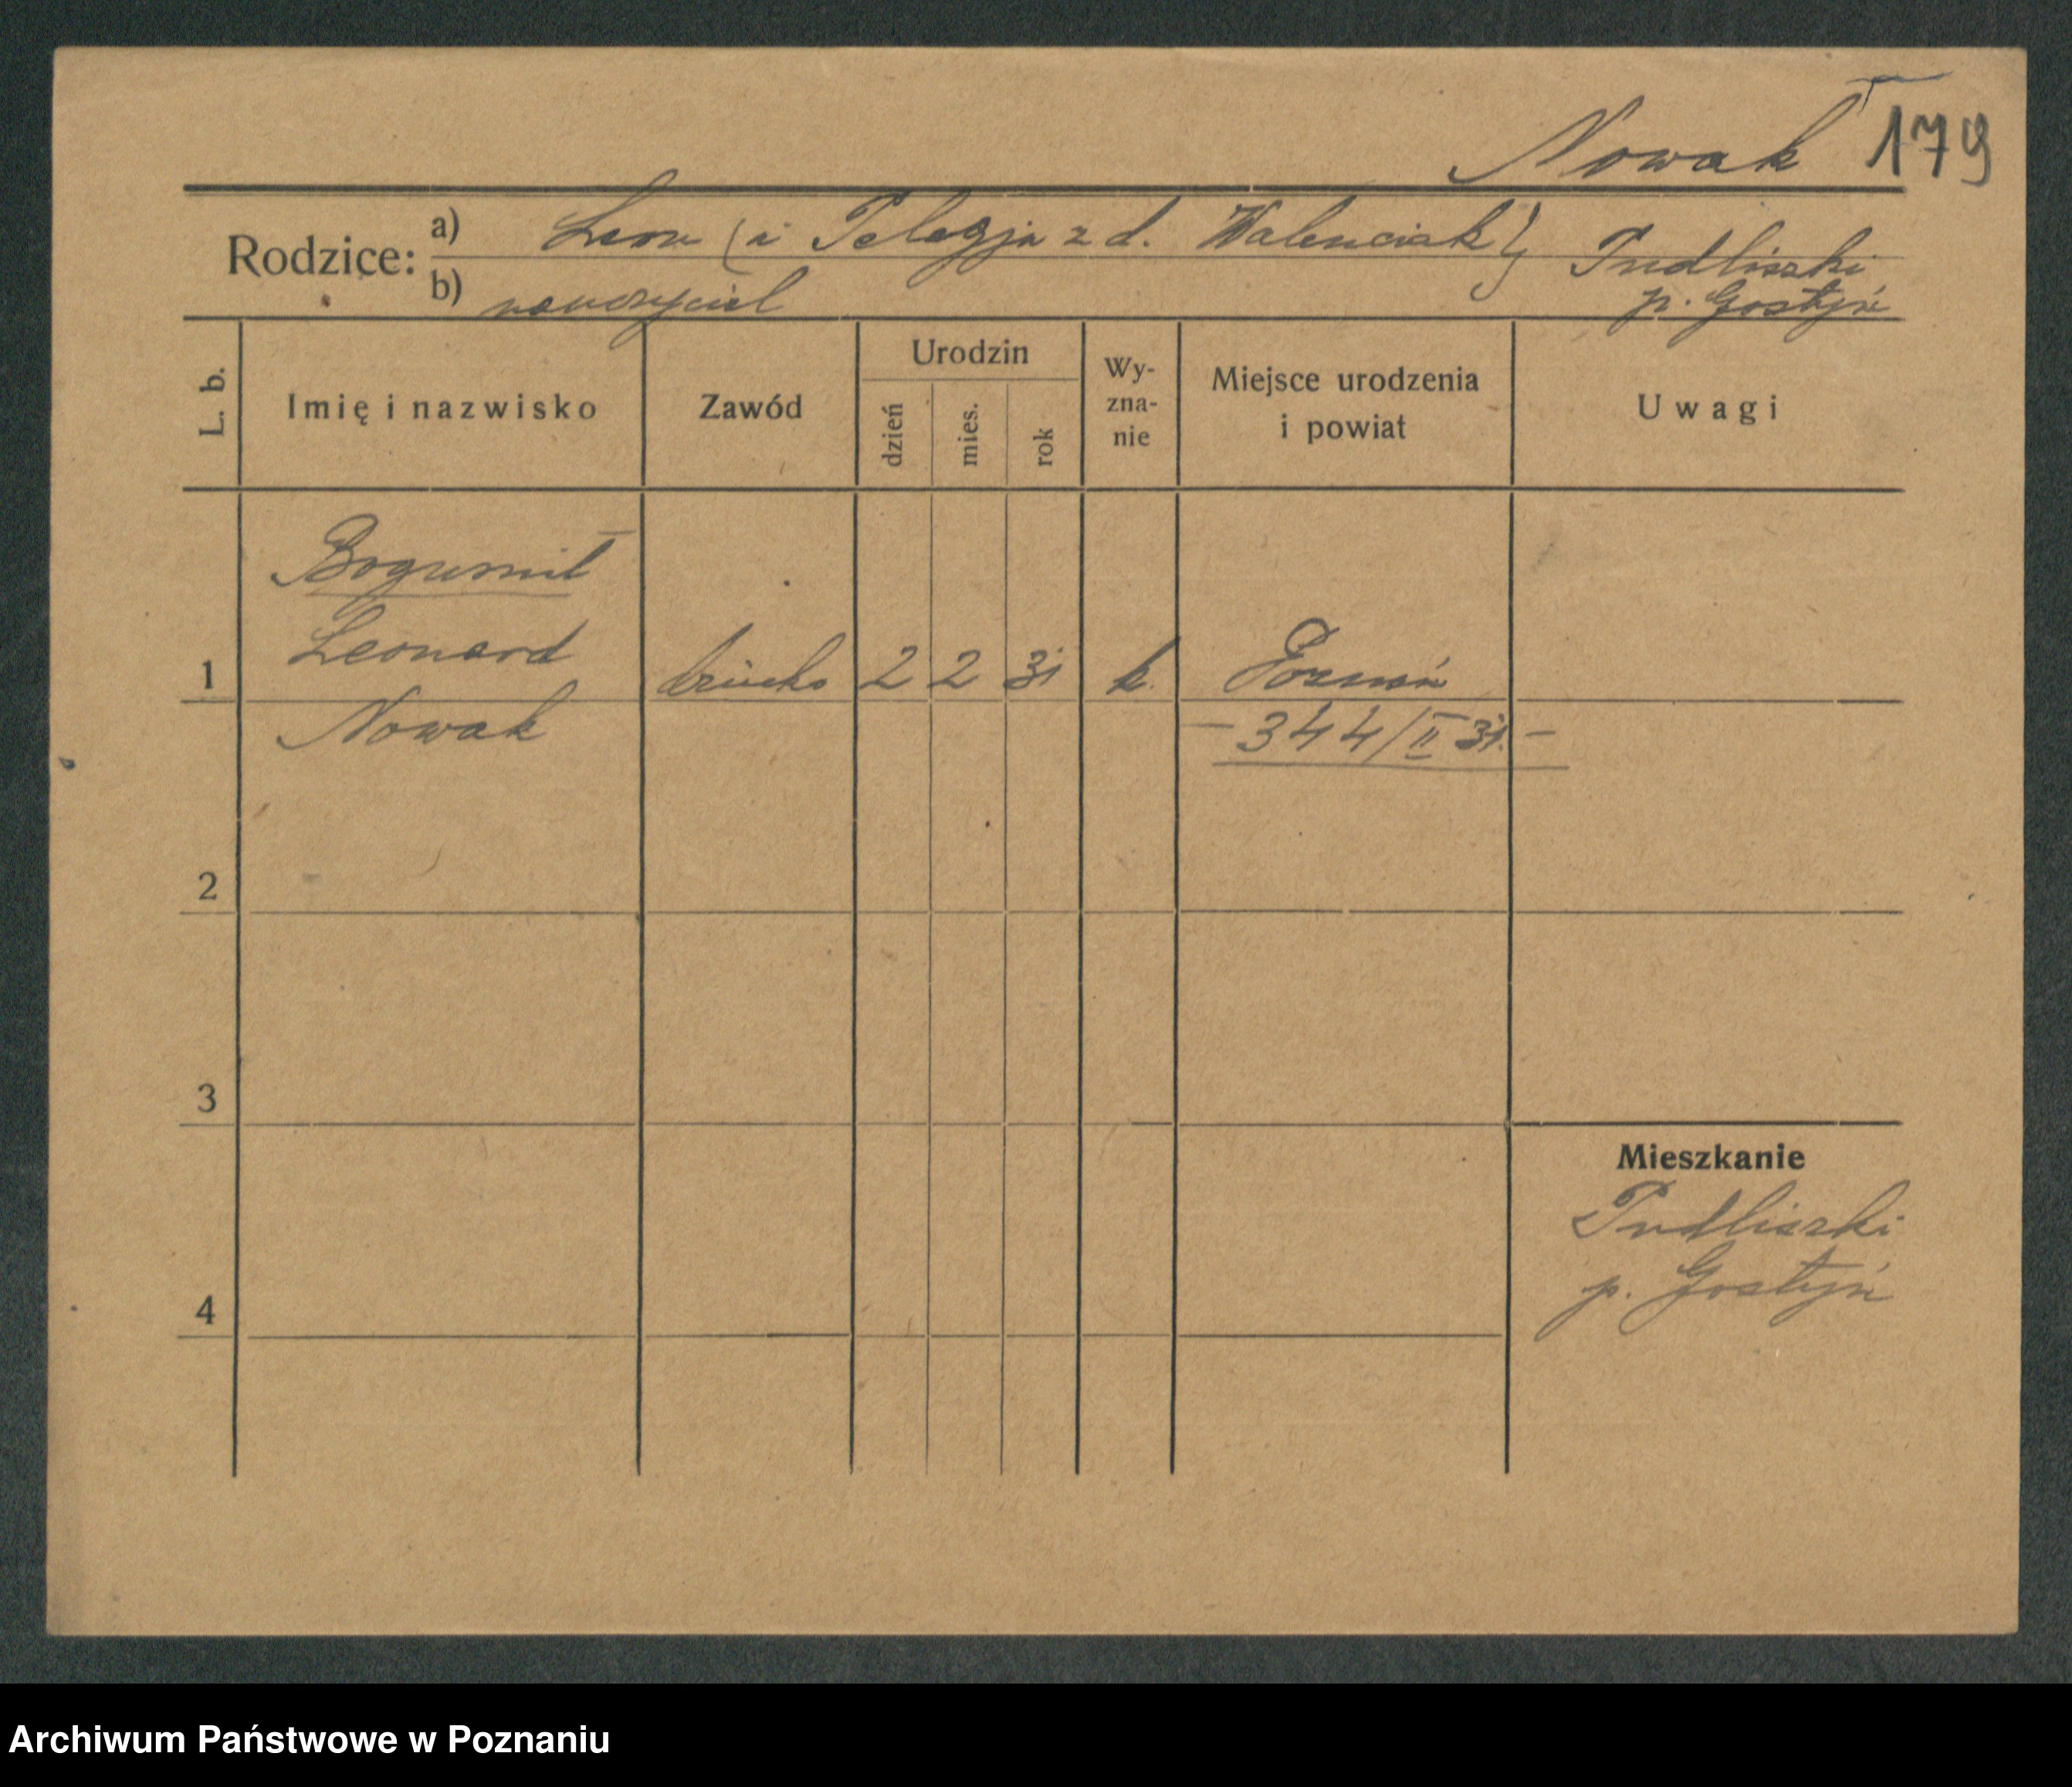 Nowak 179
Rodzice: a) Leon (i Pelagja z d. Walenciak) Pudliszki
b) nauczyciel p. Gostyń
L. b. Imię i nazwisko Zawód Urodzin dzień mies. rok Wy-zna-nie Miejsce urodzenia i powiat Uwagi
Bogumił
Leonard
1 dziecko 2 2 31 k. Poznań
Nowak - 344/II 31. -
2
3
Mieszkanie
Pudliszki
p. Gostyń
4
Archiwum Państwowe w Poznaniu